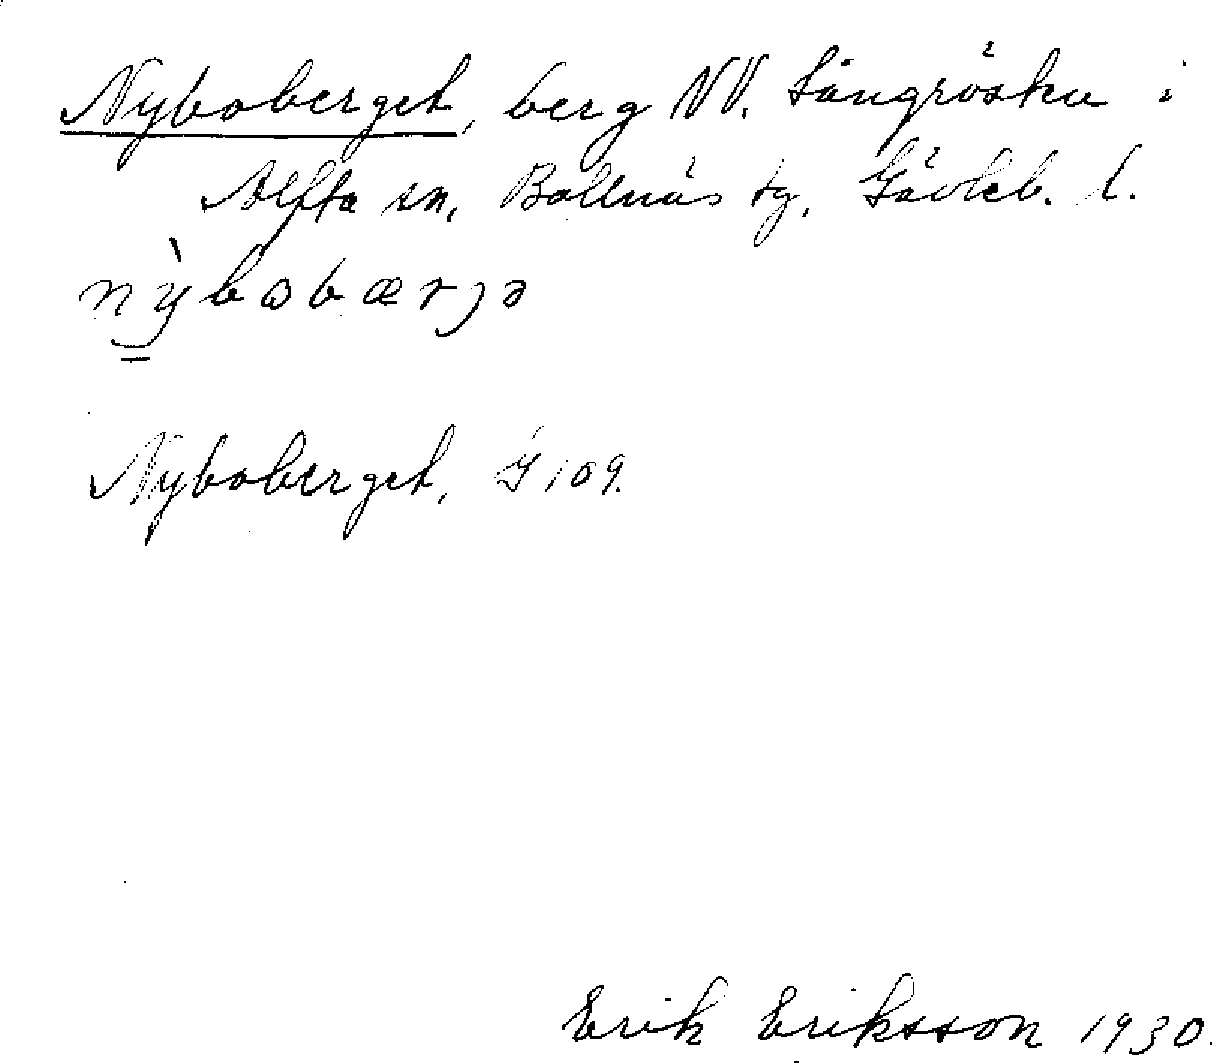 Nyboberget, berg NV. Långrösku i
Alfta sn, Bollnäs tg, Gävleb. l.
nỳ̲bobærjə
Nyboberget, G 109.
Erik Eriksson 1930.